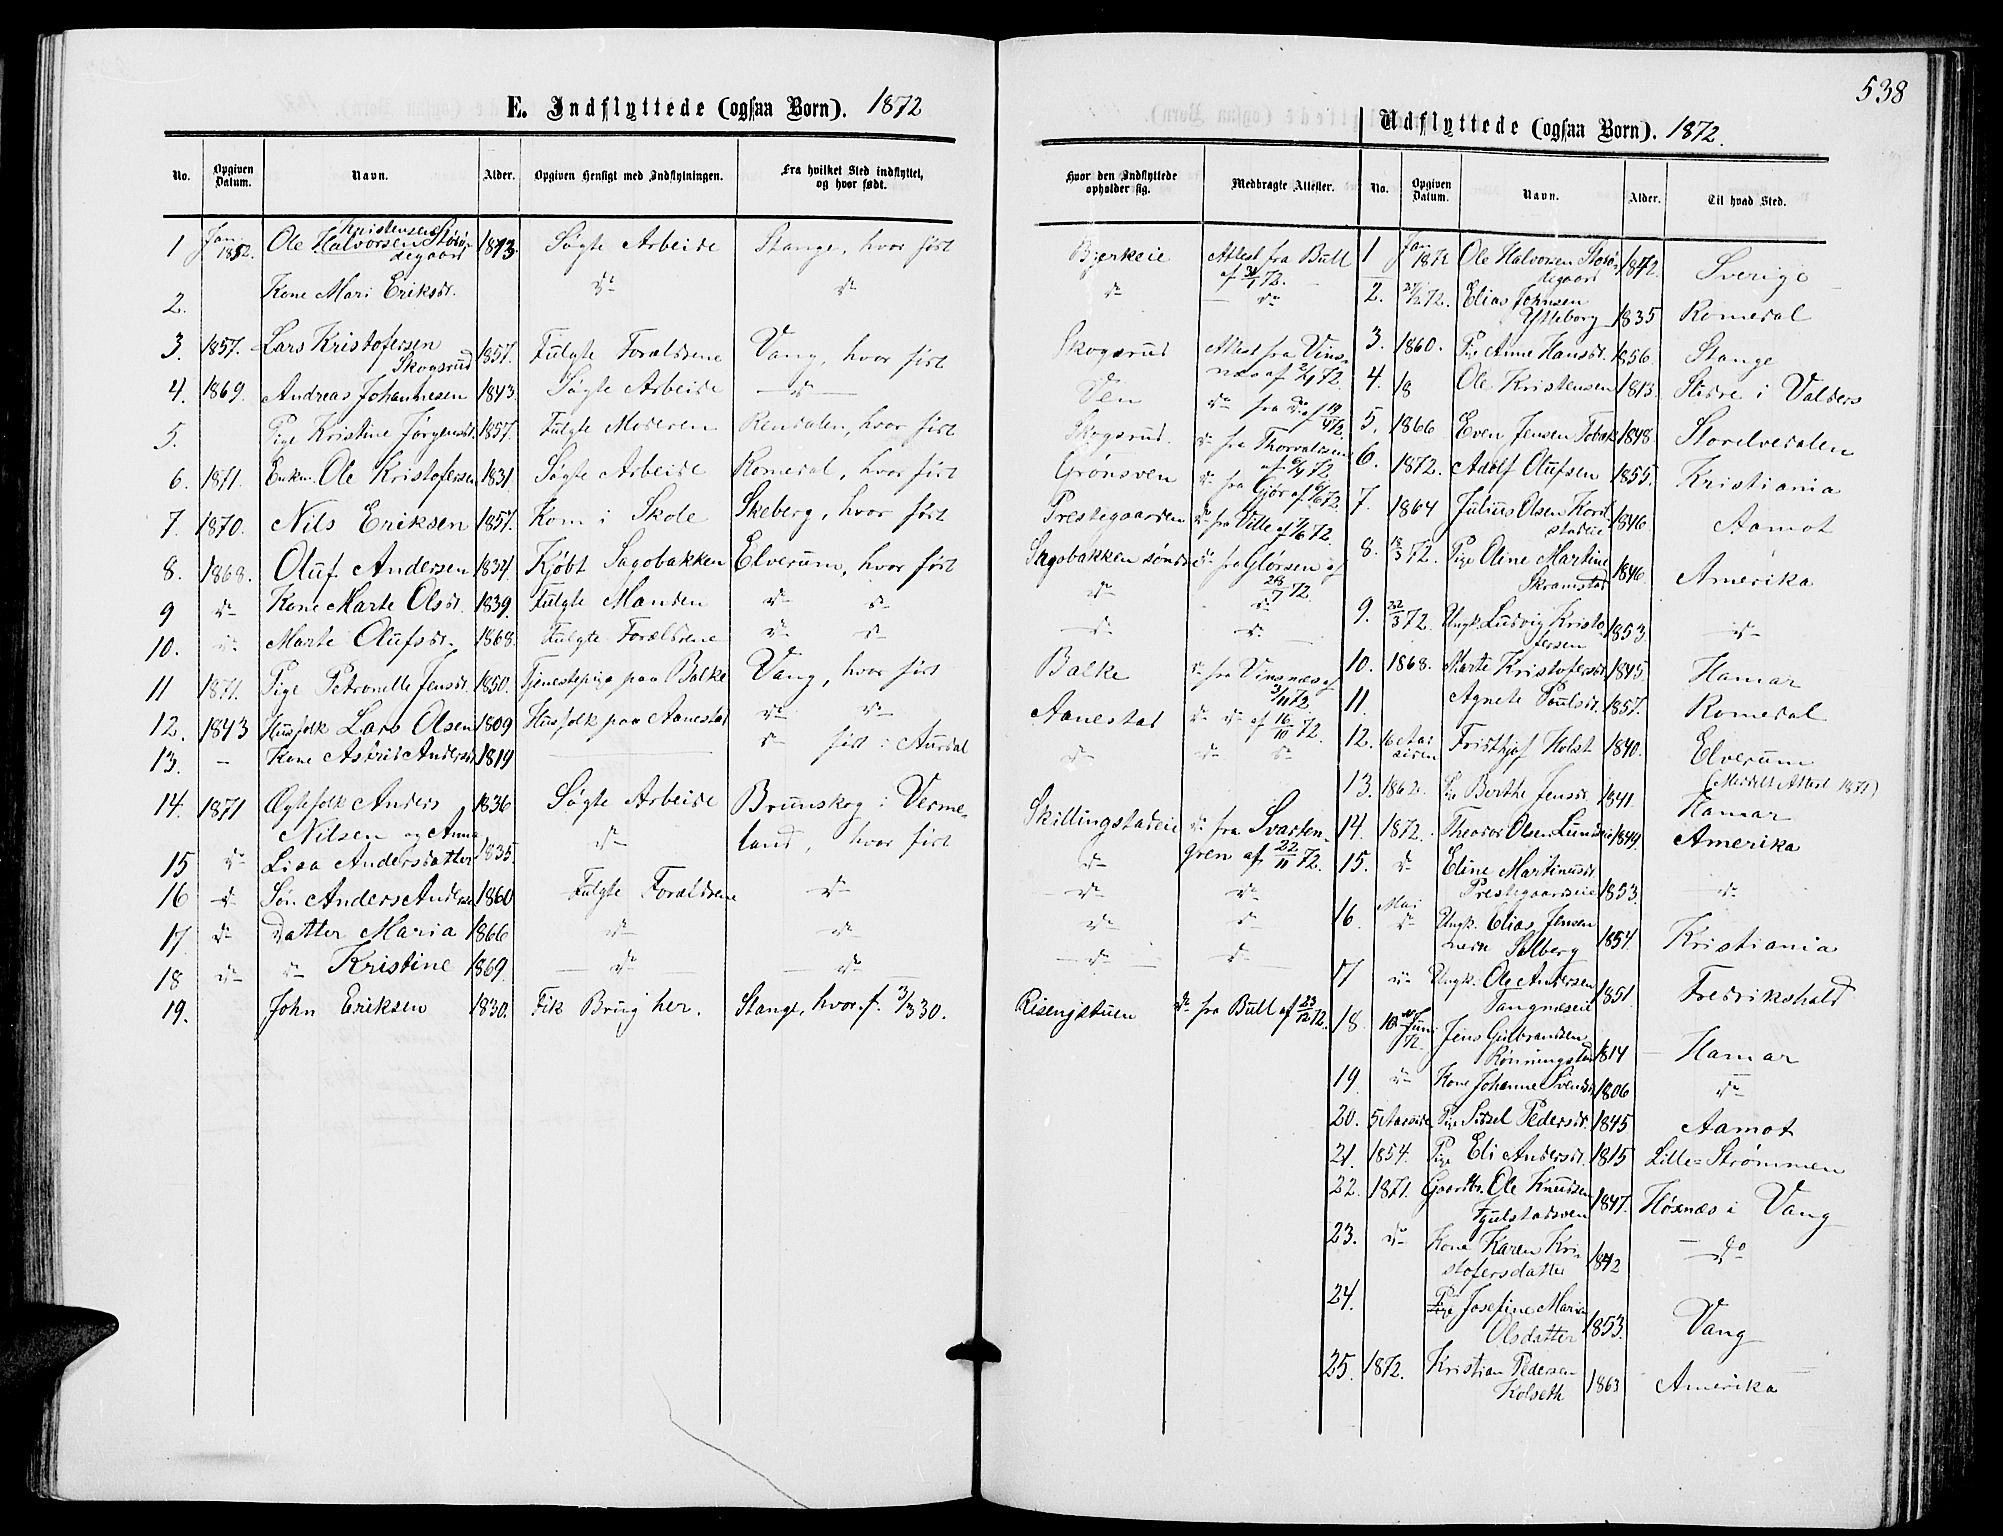 538
E. Indflyttede (ogsaa Børn). 1872
No. Opgiven Datum. Navn. Alder. Opgiven Hensigt med Indflytningen. Fra hvilket Sted indflyttet, og hvor født.
Kristensen
1 Jan. 1852. Ole Halvorsen 1813. Søgte Arbeide Stange, hvor født
2. Kone Mari Eriksdt. do do
3. 1857. Lars Kristofersen
Skogsrud 1857. Fulgte Forældrene Vang, hvor født
4. 1869. Andreas Johannesen 1843. Søgte Arbeide do
5. Pige Kristine Jørgensdt. 1857. Fulgte Moderen Rendalen, hvor født
6. 1871. Enkm. Ole Kristofersen 1831. Søgte Arbeide Romedal, hvor født
7. 1870. Nils Eriksen 1857. Kom i Skole Skeberg, hvor født
8. 1868. Oluf Andersen 1834 Kjøbt Sagobakken Elverum, hvor født
9 do Kone Marte Olsdt. 1839. Fulgte Manden do do
10. do Marte Olufsdt. 1868. Fulgte Forældrene do do
11 1871. Pige Petronelle Jensdt. 1850. Tjenestepige paa Balke Vang, hvor født
12. 1843 Husfolk Lars Olsen 1809 Husfolk paa Aanestad do do
13. - Kone Astrid Andersdt. 1819 do født i Aurdal
14. 1871 Ægtefolk Anders 1836 Søgte Arbeide Brunskog i Verme-
Nilsen og Anna do land, hvor født
15 do Lisa Andersdatter 1835.
16 do Søn Anders Andersen 1860 Fulgte Forældrene do
17 do Datter Maria 1866 do do
18 do do Kristine 1869. do do
19. John Eriksen 1830. Fik Brug her. Stange, hvor f. 3/3 30.
Udflyttede (ogsaa Børn). 1872.
Hvor den Indflyttede opholder sig. Medbragte Attester. No. Opgiven Datum. Navn. Alder. Til hvad Sted.
Bjerkeie Attest fra Bull
af 31/1 72.
do do
Skogsrud Attest fra Vins-
næs af 2/4 72.
Ven do fra do af 19/4 72.
Skogsrud. do fra Thorvaldsen
af 6/4 72
Grønsven do fra Gjør af 6/6 72.
Prestegaarden do fra Ville af 7/6 72.
Sagobakken søndre do fra Glørsen af
28/7 72.
do do
do do
Balke do fra Vinsnæs af
3/11 72.
Aanestad do do af 16/10 72.
do do do
Skillingstadeie do fra Svarten-
gren af 22/11 72.
do
do do
do do
do do
Risengstuen do fra Bull af 23/12 72.
1 Jan 1872 Ole Halvorsen 1842. Sverige
2. 27/2 72. Elias Johnsen
Ytteborg 1835 Romedal
3. 1860. Pige Anne Hansdt. 1856. Stange
4. 18 Ole Kristensen 1813. Slidre i Valders
5. 1866 Even Jensen 1848. Storelvedalen
6. 1872. Adolf Olufsen 1855. Kristiania
7. 1864 Julius Olsen Kord-
stadeie 1846. Aamot
8. 18/3 72. Pige Oline Martine
Skramstad 1846. Amerika
9. 22/3 72. Ungk. Ludvig Kristo-
fersen 1853. do
10. 1868. Marte Kristofersdt. 1845. Hamar
11. Agnete Poulsdt. 1857. Romedal
12. 16 Aar siden Fridthjof Holst 1840. Elverum
(Meddelt Attest 1871)
13. 1862. Berthe Jensdt. 1841. Hamar
14. 1872. Theodor Olsen 1849. Amerika
15. do Eline Martinusdt.
Prestegaardseie 1853. do
16. Mai do Ungk. Elias Jensen
Solberg 1854. Kristiania
17 do Ungk. Ole Andersen
Tangnæseie 1851 Fredrikshald
18. Juni 72. Jens Gulbrandsen
Rønningstad 1814 Hamar
19 do Kone Johanne Svendsdt. 1806 do
20. Pige Sidsel Pedersdt. 1845 Aamot
21. 1854. Pige Eli Andersdt. 1815 Lille-Strømmen
22. 1871. Gaardbr. Ole Knudsen
Fjulstadsven 1847. Høsnæs i Vang
23. do Kone Karen Kri-
stofersdatter 1842 do
24. Pige Josefine Marie
Olsdatter 1853. Vang
25. 1872. Kristian Pedersen
Kolseth 1863 Amerika